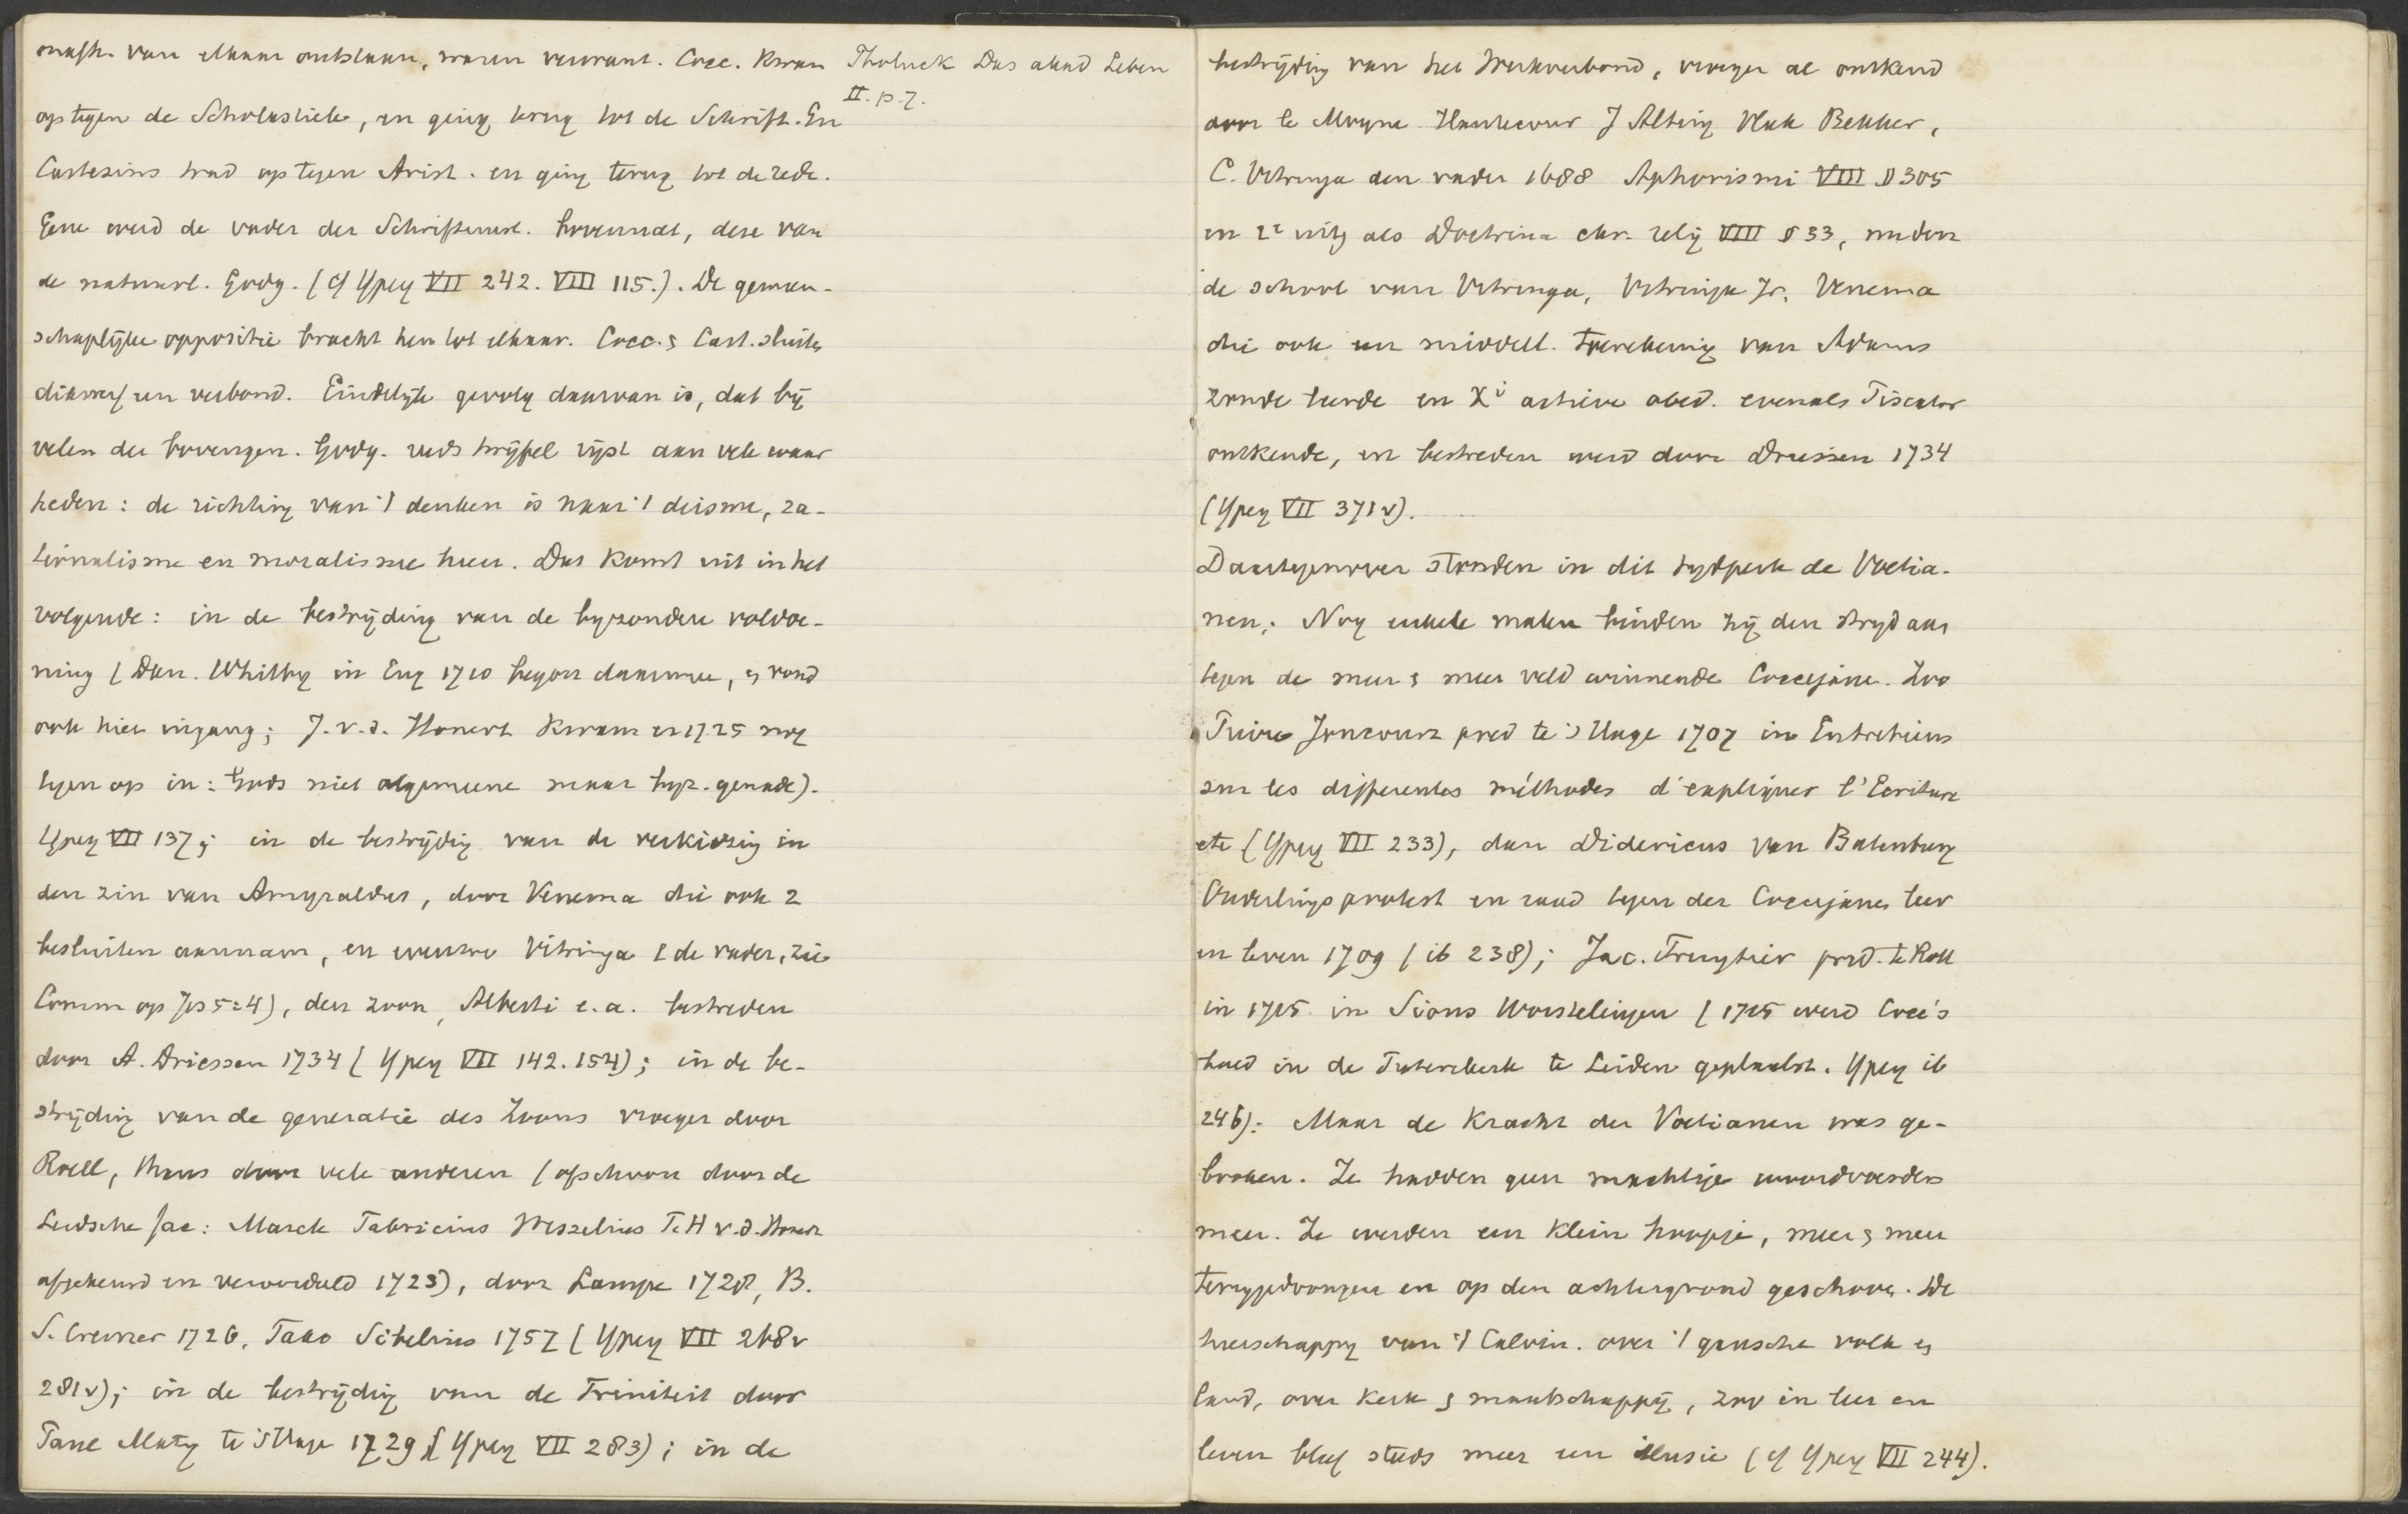 onafh. van elkaar ontstaan, waren verwant. Cocc. kwam
op tegen de Scholastiek, en ging terug tot de Schrift. En
Cartesius trad op tegen Arist. en ging terug tot de rede.
Gene werd de vader der Schriftuurl. bovennat, deze van
de natuurl. Godg. (cf Ypey VII 242. VIII 115.). De gemeen-
schaplijke oppositie bracht hen tot elkaar. Cocc. & Cart. sluiten
dikwerf een verbond. Eindelijk gevolg daarvan is, dat bij
velen der bovengen. Godg. reeds twijfel rijst aan vele waar
heden: de richting van 't denken is naar 't deisme, ra-
tionalisme en moralisme heen. Dat komt uit in het
volgende: in de bestrijding van de byzondere voldoe-
ning (Dan. Whitby in Eng 1710 begon daarmee, & vond
ook hier ingang; J. v. d. Honert kwam in 1725 nog
tegen op in: Gods niet algemeene maar byz. genade).
Ypey VII 137; in de bestrijdig van de verkiezing in
den zin van Amyraldus, door Venema die ook 2
besluiten aannam, en evenzoo Vitringa (de vader, zie
Comm op Jes 5:4), den zoon, Alberti e.a. bestreden
door A. Driessen 1734 (Ypey VII 142. 154); in de be-
strijding van de generatie des Zoons vroeger door
Roell, thans door vele anderen (ofschoon door de
Leidsche fac: Marck Fabricius Wesselius T. H v. d. Honert
afgekeurd en veroordeeld 1723), door Lampe 1728, B.
S. Cremer 1726, Tako Sibelius 1757 (Ypey VII 268v
281v); in de bestrijdig van de Triniteit door
Paul Maty te 's Hage 1729 (Ypey VII 283); in de
Tholuck Das akad Leben
II. p. 7.
bestrijding van het Werkverbond, vroeger al ontkend
door le Moyne Hautecour J Alting Vlak Bekker,
C. Vitringa den vader 1688 Aphorismi VIII § 305
in 2e uitg als Doctrina chr. relig VIII § 33, nu door
de school van Vitringa, Vitringa Jr. Venema
die ook een middell. toerekening van Adams
zonde leerde en Xi active obed. evenals Piscator
ontkende, en bestreden werd door Driessen 1734
(Ypey VII 371v).
Daartegenover stonden in dit tydperk de Voetia-
nen; Nog enkele malen binden zij den stryd aan
tegen de meer & meer veld winnende Coccejane. Zoo
Pierre Joncourt pred te 's Hage 1707 in Entretiens
sur les differentes méthodes d'expliquer l'Ecriture
etc (Ypey VII 233), dan Didericus van Batenburg
Ouderlings protest en raad tegen der Coccejanen leer
en leven 1709 (ib 238); Jac. Fruytier pred. te Rott
in 1715 in Sions Worstelingen (1715 werd Cocc's
beeld in de Pieterskerk te Leiden geplaatst. Ypey ib
246). Maar de kracht der Voetianen was ge-
broken. Ze hadden geen machtige woordvoerders
meer. Ze werden een klein hoopje, meer & meer
teruggedrongen en op den achtergrond geschoven. De
heerschappy van 't Calvin. over 't gansche volk en
land, over kerk & maatschappij, zoo in leer en
leven bleef steeds meer een illusie (cf Ypey VII 244).